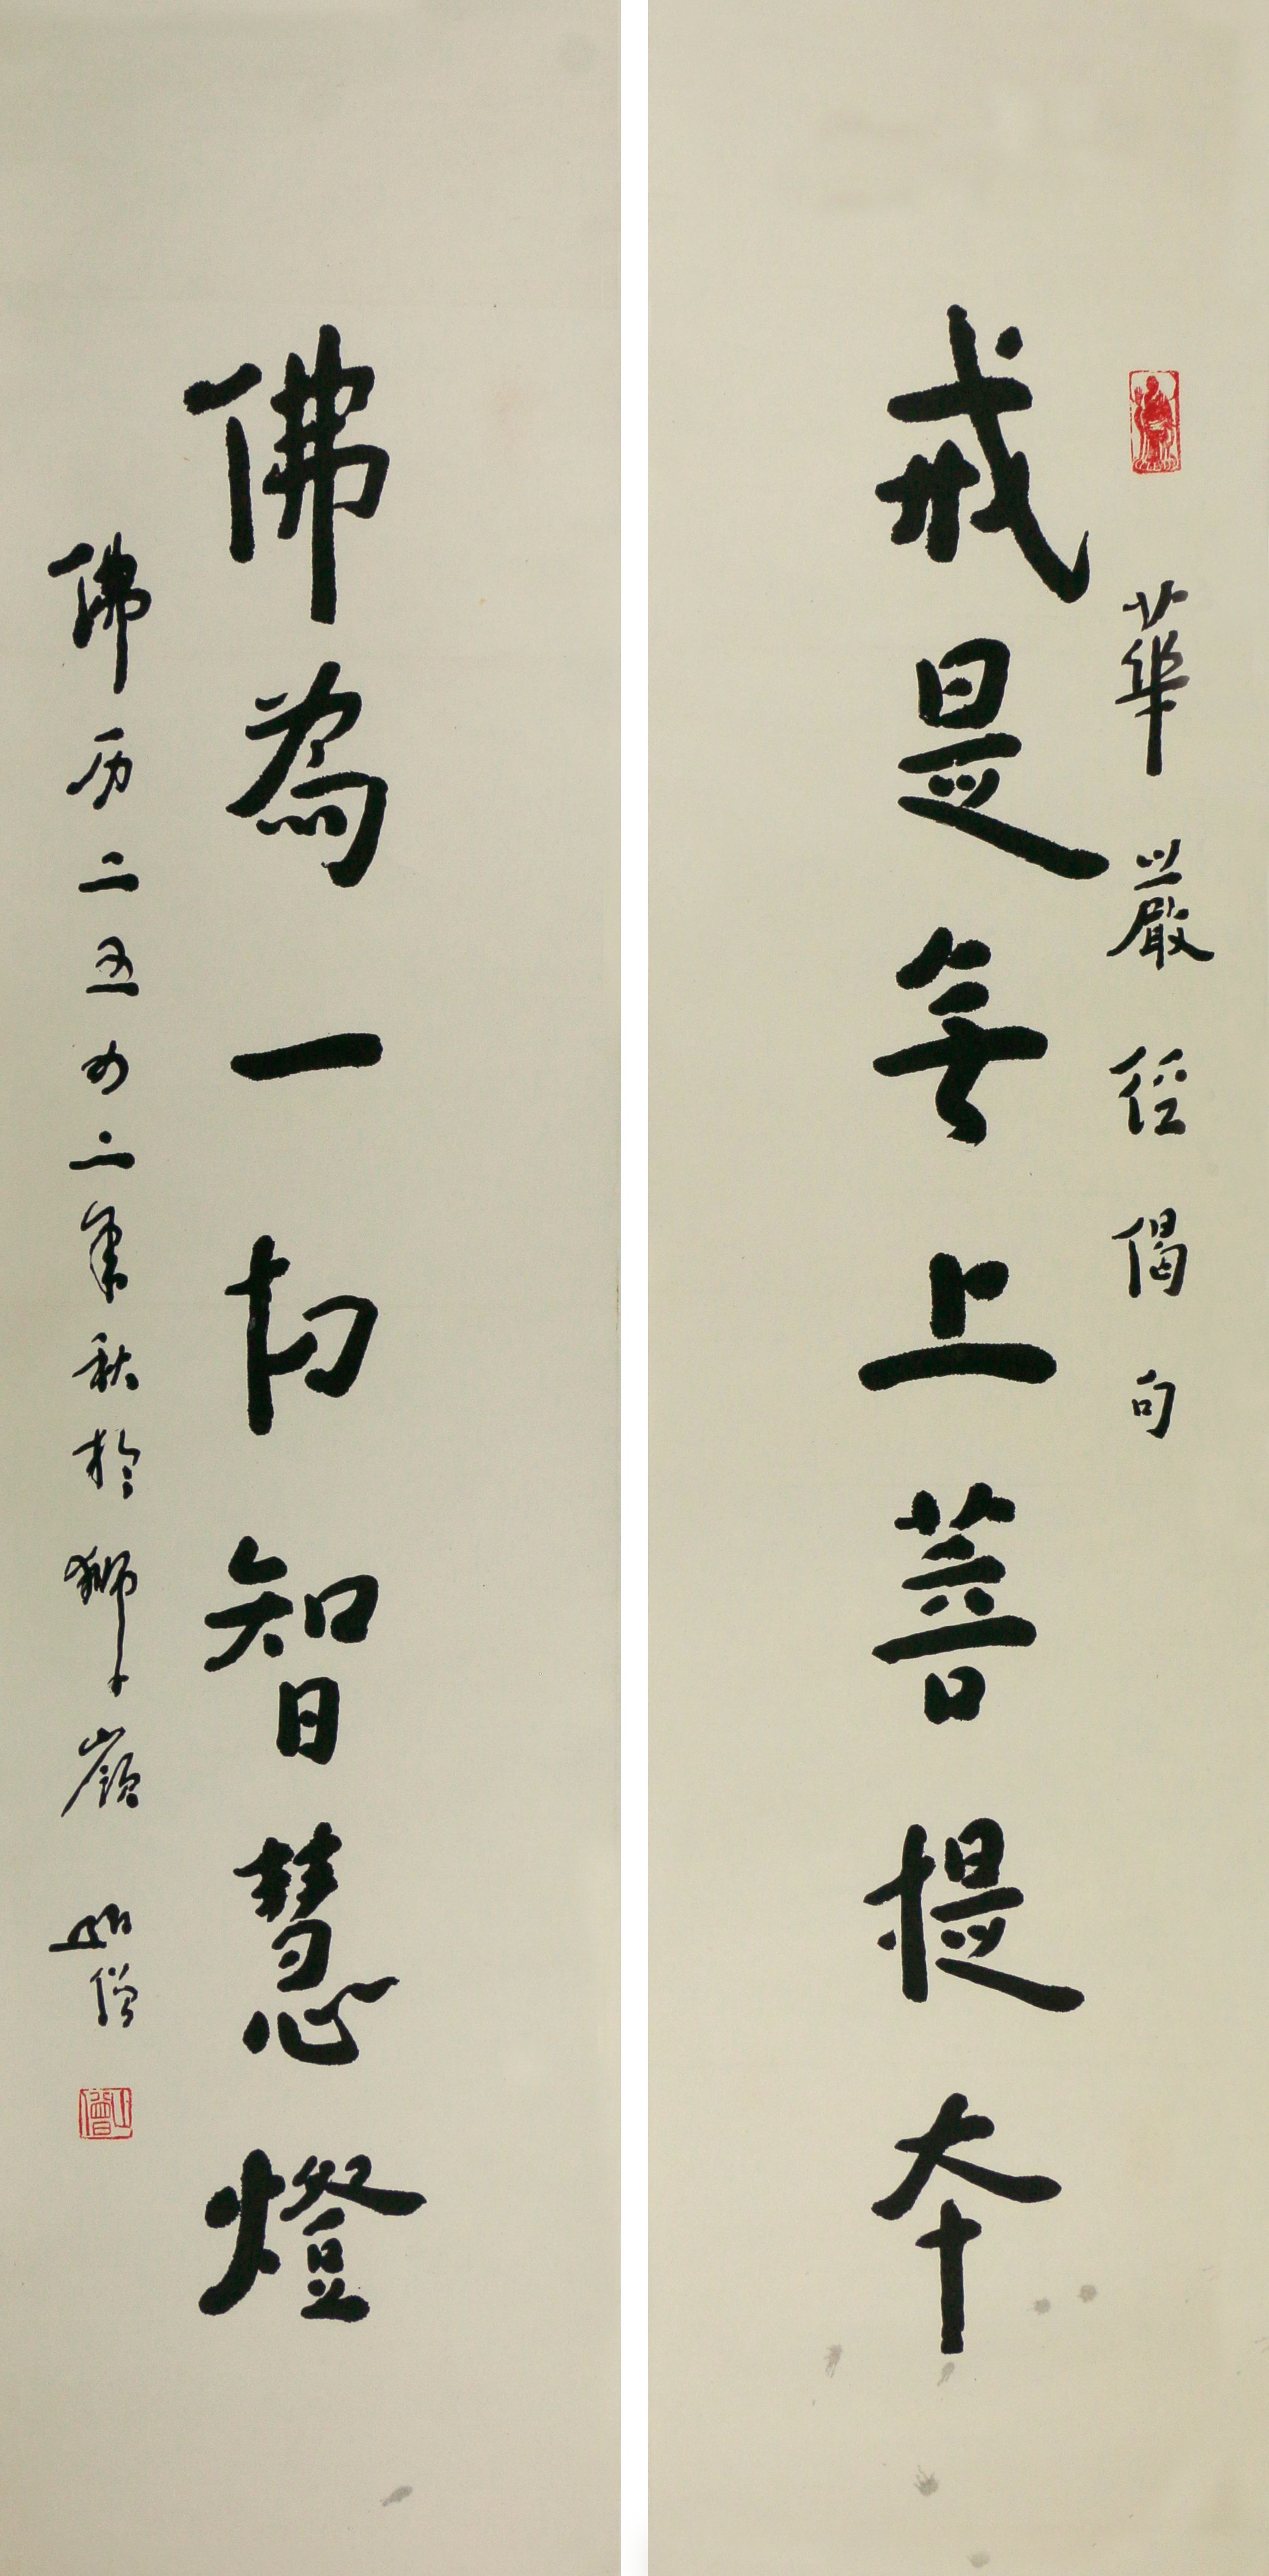 華嚴经偈句
戒是無上菩提本
佛為一切智慧燈
佛历二五四二年秋於獅子嶺
僧